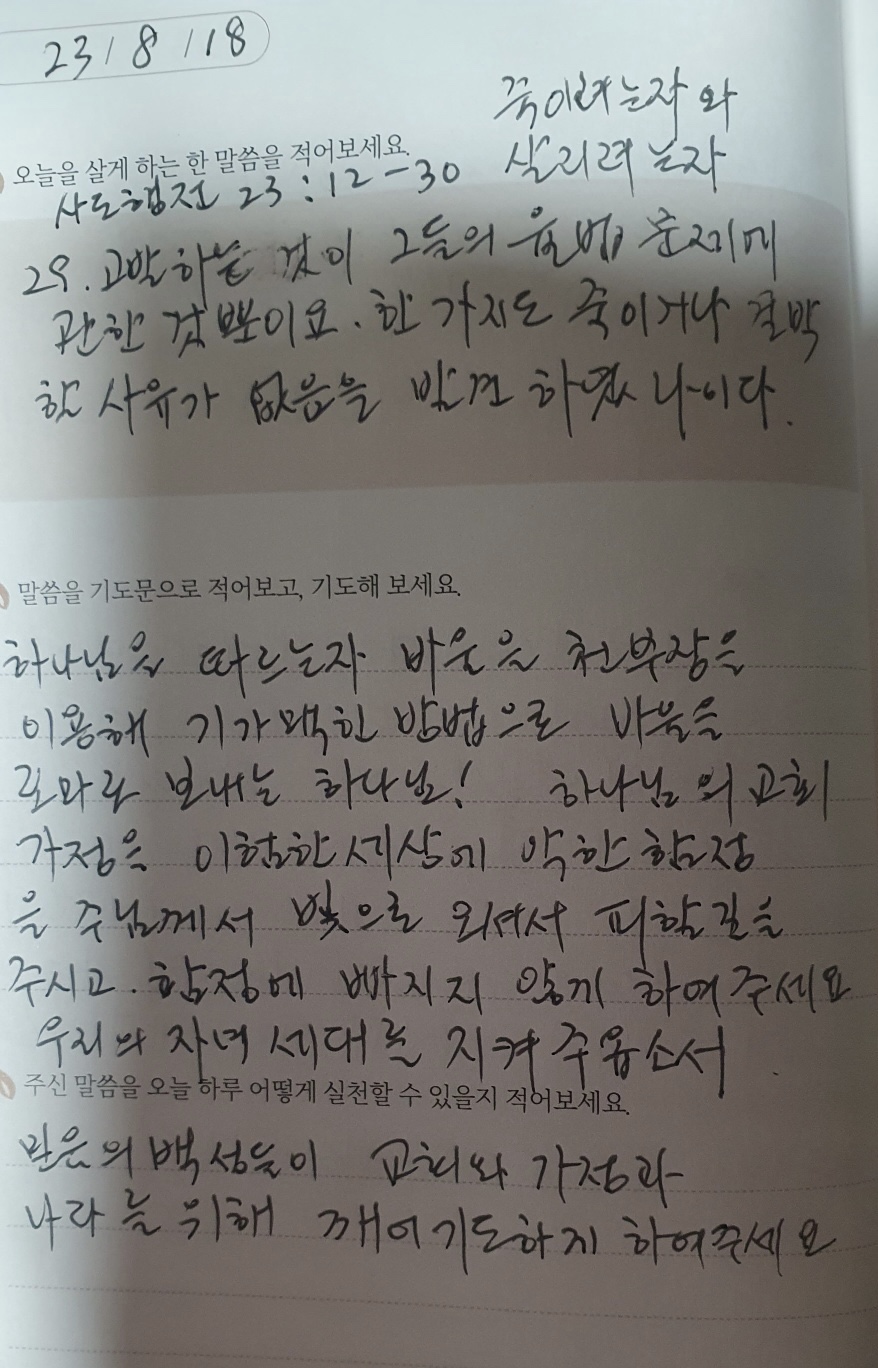 23/8/18
죽이려는자와
오늘을 살게 하는 한 말씀을 적어보세요.
살리려는자
사도행전 23:12-30
29. 고발하는 것이 그들의 율법 문제에
관한 것뿐이요. 한 가지도 죽이거나 결박
할 사유가 없음을 발견 하였나이다.
말씀을 기도문으로 적어보고, 기도해 보세요.
하나님을 따르는자 바울을 천부장을
이용해 기가맥힌 방법으로 바울을
로마로 보내는 하나님! 하나님의 교회
가정을 이험한세상에 악한함정
을 주님께서 빛으로 오셔서 피할길을
주시고. 함정에 빠지지 않게 하여주세요
우리의 자녀 세대를 지켜 주옵소서
주신 말씀을 오늘 하루 어떻게 실천할 수 있을지 적어보세요.
믿음의 백성들이 교회와 가정과
나라를 위해 깨어기도하게 하여주세요